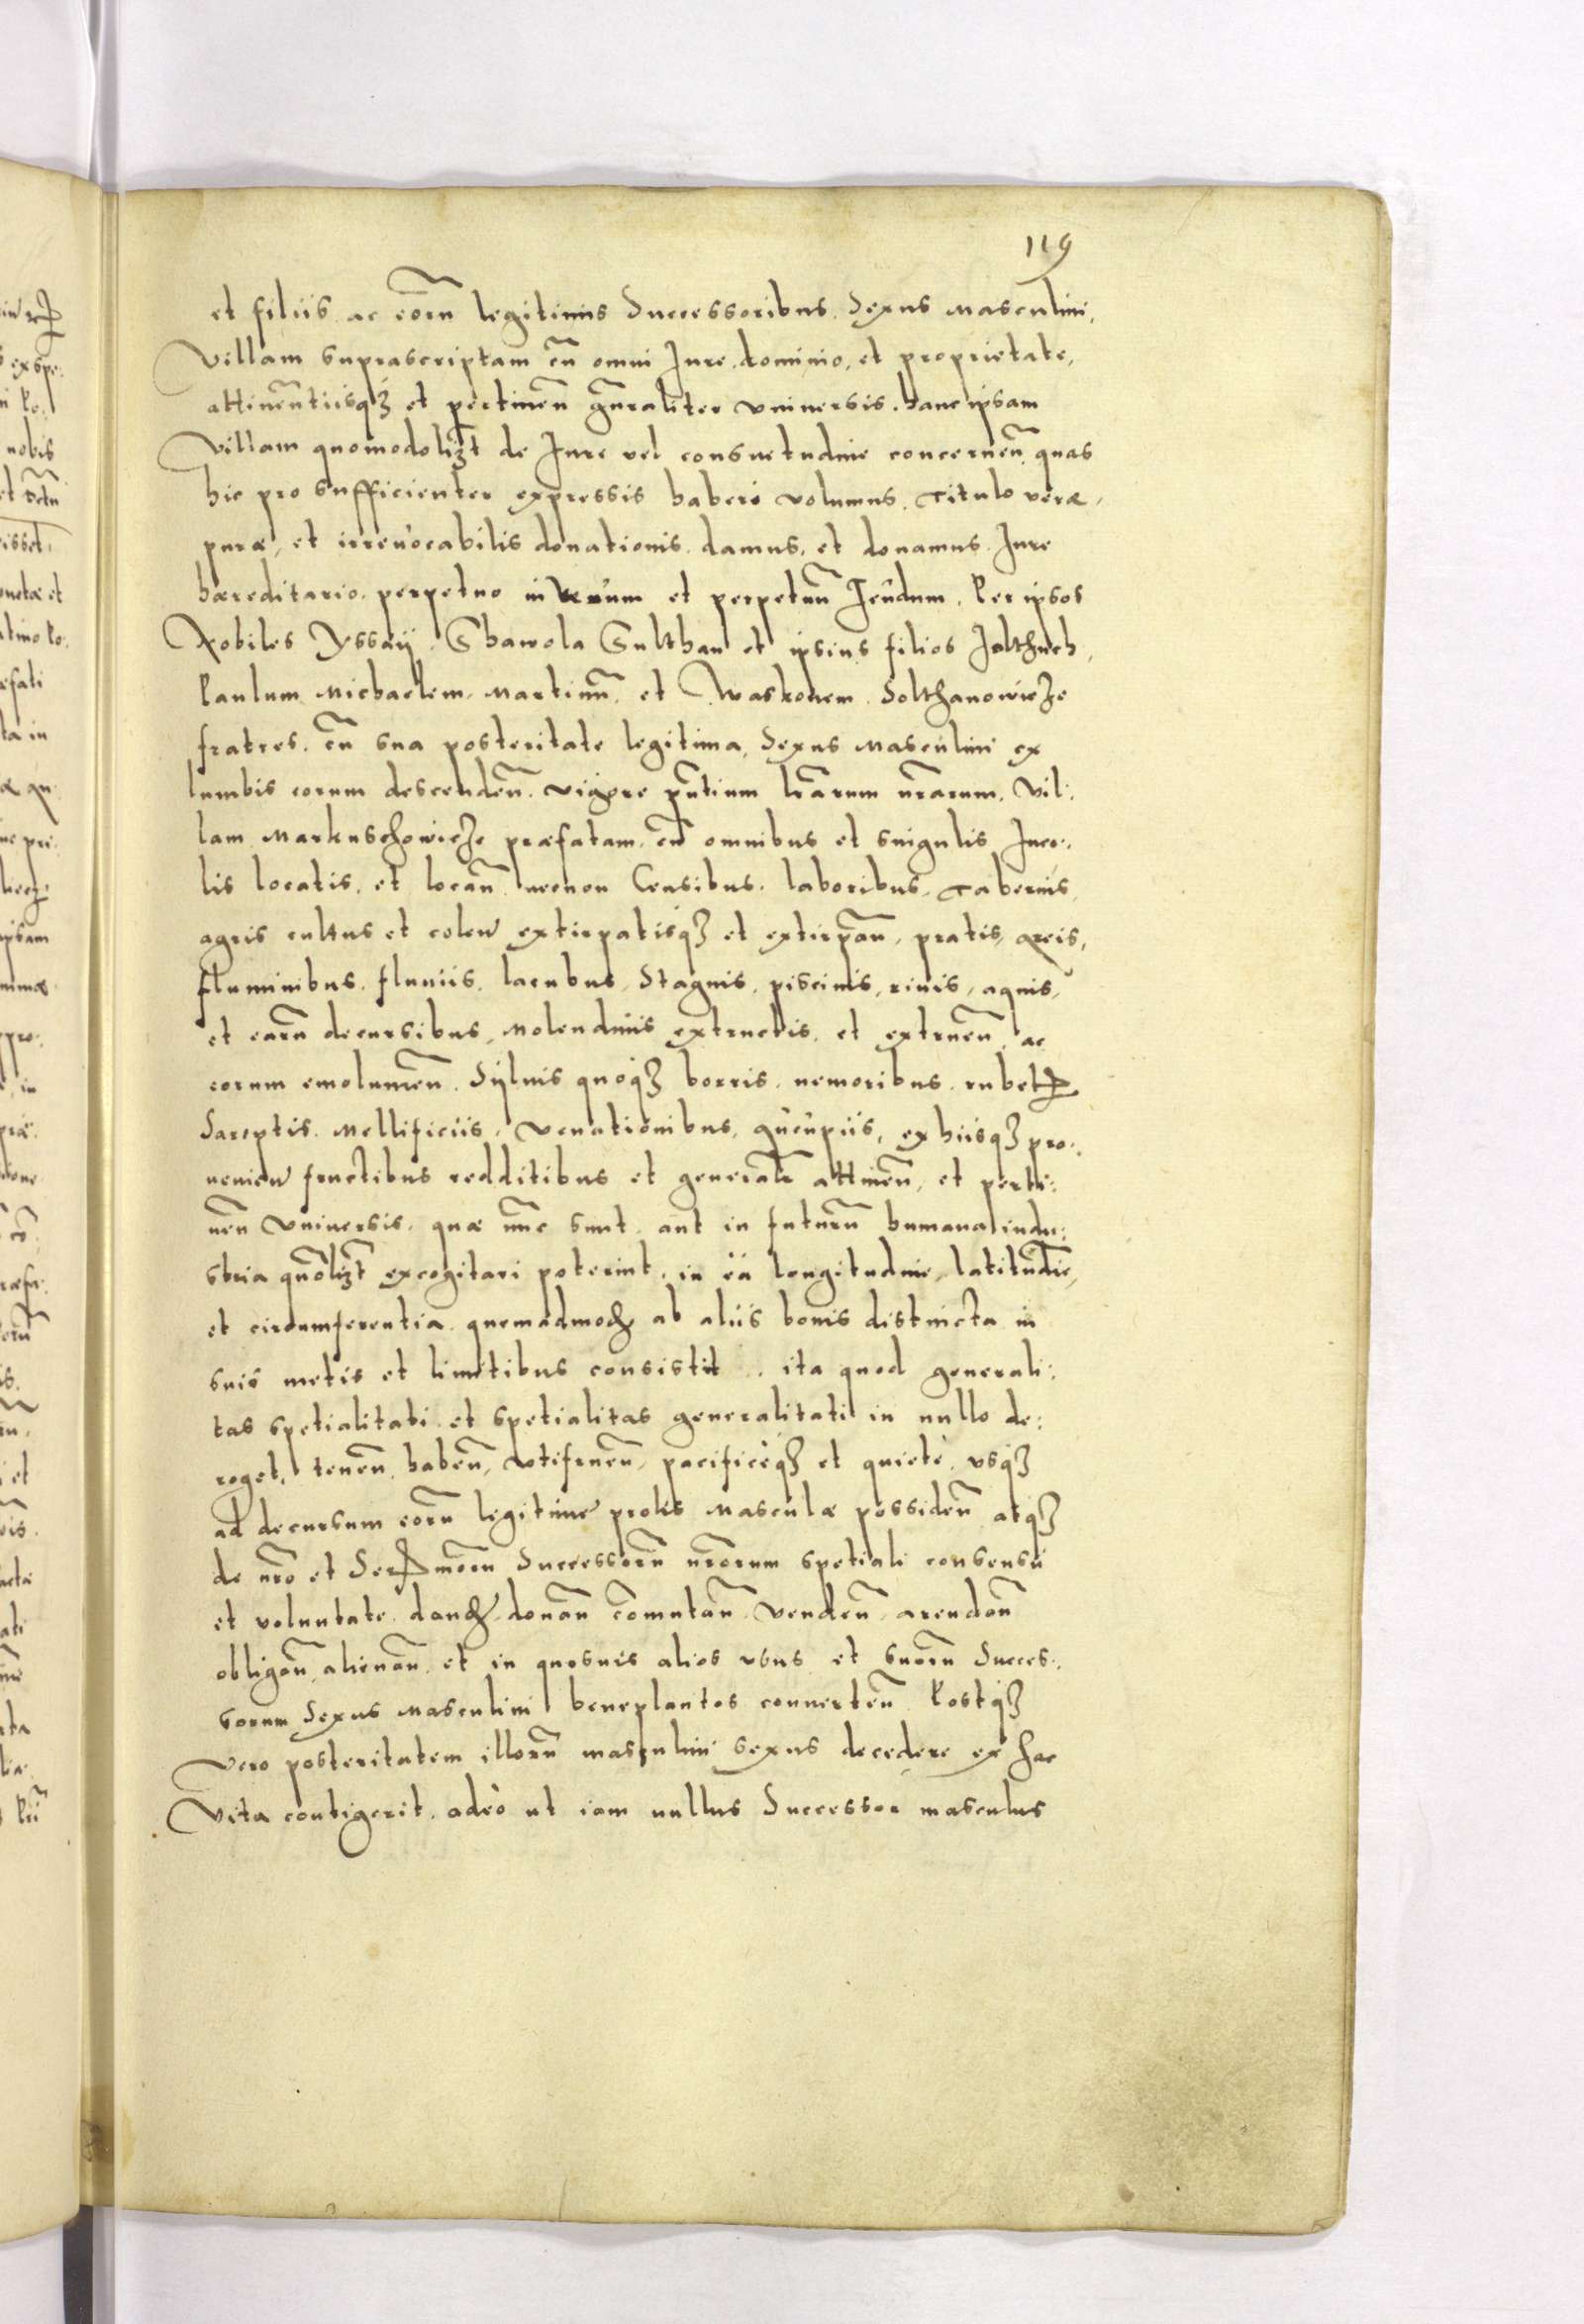 119
et filiis ac eorū legitimis Successoribus. Sexus masculini,
villam suprascriptam cū omni Jure dominio, et proprietate,
attinentiisqȝ et pertineñ gñraliter vniuersis. hanc ipsam
villam quomodolibȝt de Jure vel consuetudine concerneñ quas
hic pro sufficienter expressis haberi volumus. Titulo veræ,
puræ, et irreuocabilis donationis. damus, et donamus. Jure
hæreditario. perpetuo in verum et perpetuū Feudum. Per ipsos
Nobiles Yssaÿ. Shawola Sulthan et ipsius filios Jalthuch,
Paulum Michaelem. Martinū. et Waskonem. Solthanowicze
fratres. cū sua posteritate legitima, Sexus masculini ex
lumbis eorum descendeñ. vigore pñtium lrarum nrarum. Vil:
lam Markuschowicze præfatam. cū omnibus et singulis Inco:
lis locatis. et locañ necnon Censibus. laboribus. Tabernis,
agris cultus et coleñ extirpatisqȝ et extirpañ, pratis, areis,
fluminibus. fluuiis. lacubus, Stagnis, piscinis, riuis, aquis,
et earū decursibus, Molendinis extructis. et extrueñ, ac
eorum emolumeñ. Syluis quoqȝ borris. nemoribus. rubet
Sareptis. Mellificiis, venationibus, aucupiis, ex hiisqȝ pro:
uenieñ fructibus redditibus et generalr attineñ, et perti:
neñ vniuersis. quæ nūc sunt. aut in futurū humana indu:
stria quōlibȝt excogitari poterint. in ea longitudine, latitudie,
et circumferentia quemadmod ab aliis bonis distincta in
suis metis et limitibus consistit. ita quod generali:
tas spetialitati et spetialitas generalitati in nullo de:
roget, teneñ, habeñ, vtifrueñ, pacificèqȝ et quietè. vsqȝ
ad decursum eorū legitimæ prolis masculæ possideñ atqȝ
de nro et Sermorū Successorū nrorum spetiali consensu
et voluntate. dand. donañ comutañ vendeñ. arendañ
obligañ, alienañ. et in quosuis alios vsus et suorū Succes:
sorum Sexus masculini beneplacitos conuerteñ Postqȝ
vero posteritatem illorū masculini sexus decedere ex hac
Vita contigerit. adeò ut iam nullus Successor masculus